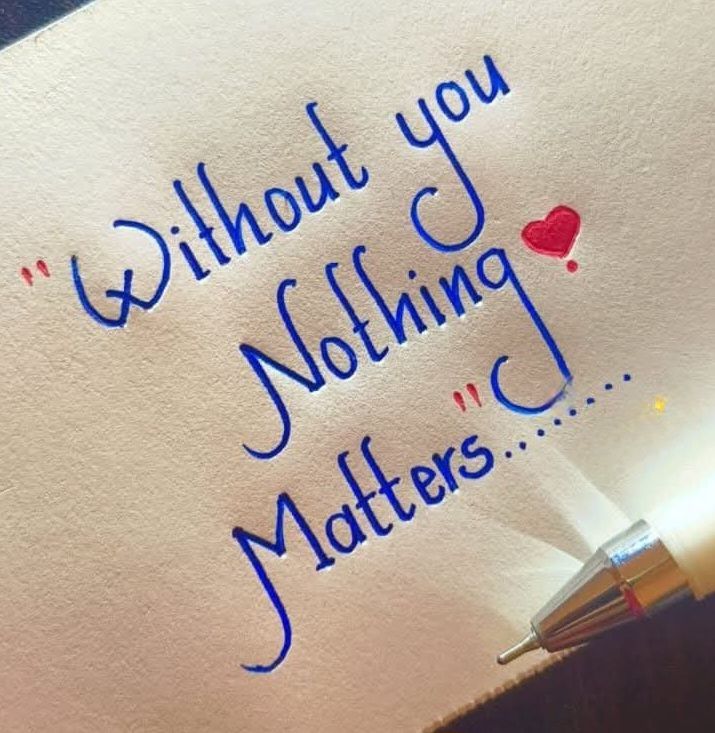 "Without you
Nothing❣
Matters"........